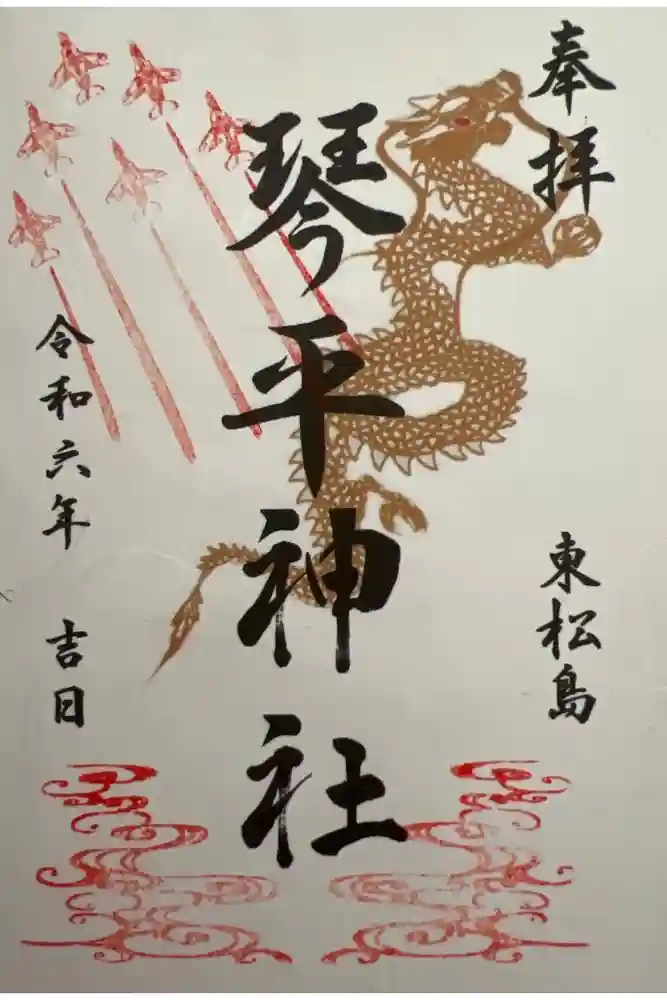 奉拝
東松島
琴平神社
令和六年 吉日